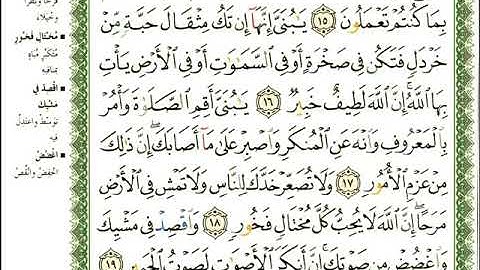 بِمَا كُنتُمْ تَعْمَلُونَ ١٥ يَٰبُنَىَّ إِنَّهَآ إِن تَكُ مِثْقَالَ حَبَّةٍ مِّنْ
خَرْدَلٍ فَتَكُن فِى صَخْرَةٍ أَوْ فِى ٱلسَّمَٰوَٰتِ أَوْ فِى ٱلْأَرْضِ يَأْتِ
بِهَا ٱللَّهُ إِنَّ ٱللَّهَ لَطِيفٌ خَبِيرٌ ١٦ يَٰبُنَىَّ أَقِمِ ٱلصَّلَوٰةَ وَأْمُرْ
بِٱلْمَعْرُوفِ وَٱنْهَ عَنِ ٱلْمُنكَرِ وَٱصْبِرْ عَلَىٰ مَآ أَصَابَكَ إِنَّ ذَٰلِكَ
مِنْ عَزْمِ ٱلْأُمُورِ ١٧ وَلَا تُصَعِّرْ خَدَّكَ لِلنَّاسِ وَلَا تَمْشِ فِى ٱلْأَرْضِ
مَرَحًا إِنَّ ٱللَّهَ لَا يُحِبُّ كُلَّ مُخْتَالٍ فَخُورٍ ١٨ وَٱقْصِدْ فِى مَشْيِكَ
وَٱغْضُضْ مِن صَوْتِكَ إِنَّ أَنكَرَ ٱلْأَصْوَٰتِ لَصَوْتُ ٱلْحَمِيرِ ١٩
وخيلاء
■ مختال فخور
متكبر مباه
بمناقبه
■ اقصد في
مشيك
توسط واعتدل
فيه
■ اغضض
اخفض وانقص